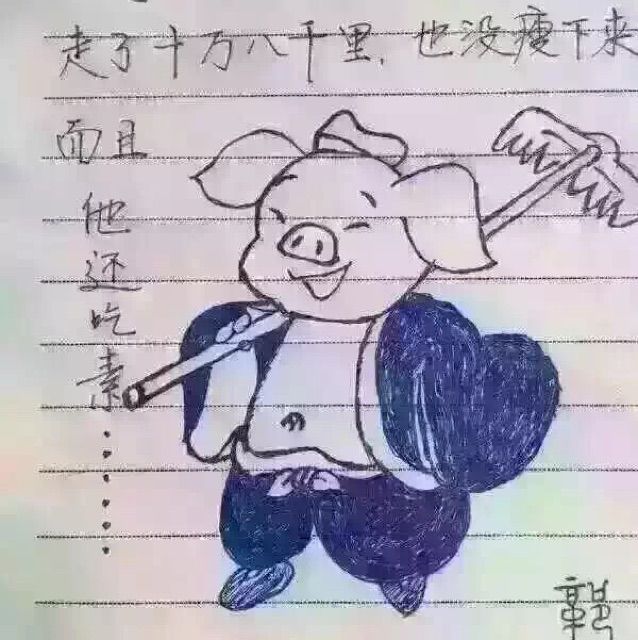 走了十万八千里，也没瘦下来
而且
他还吃素......